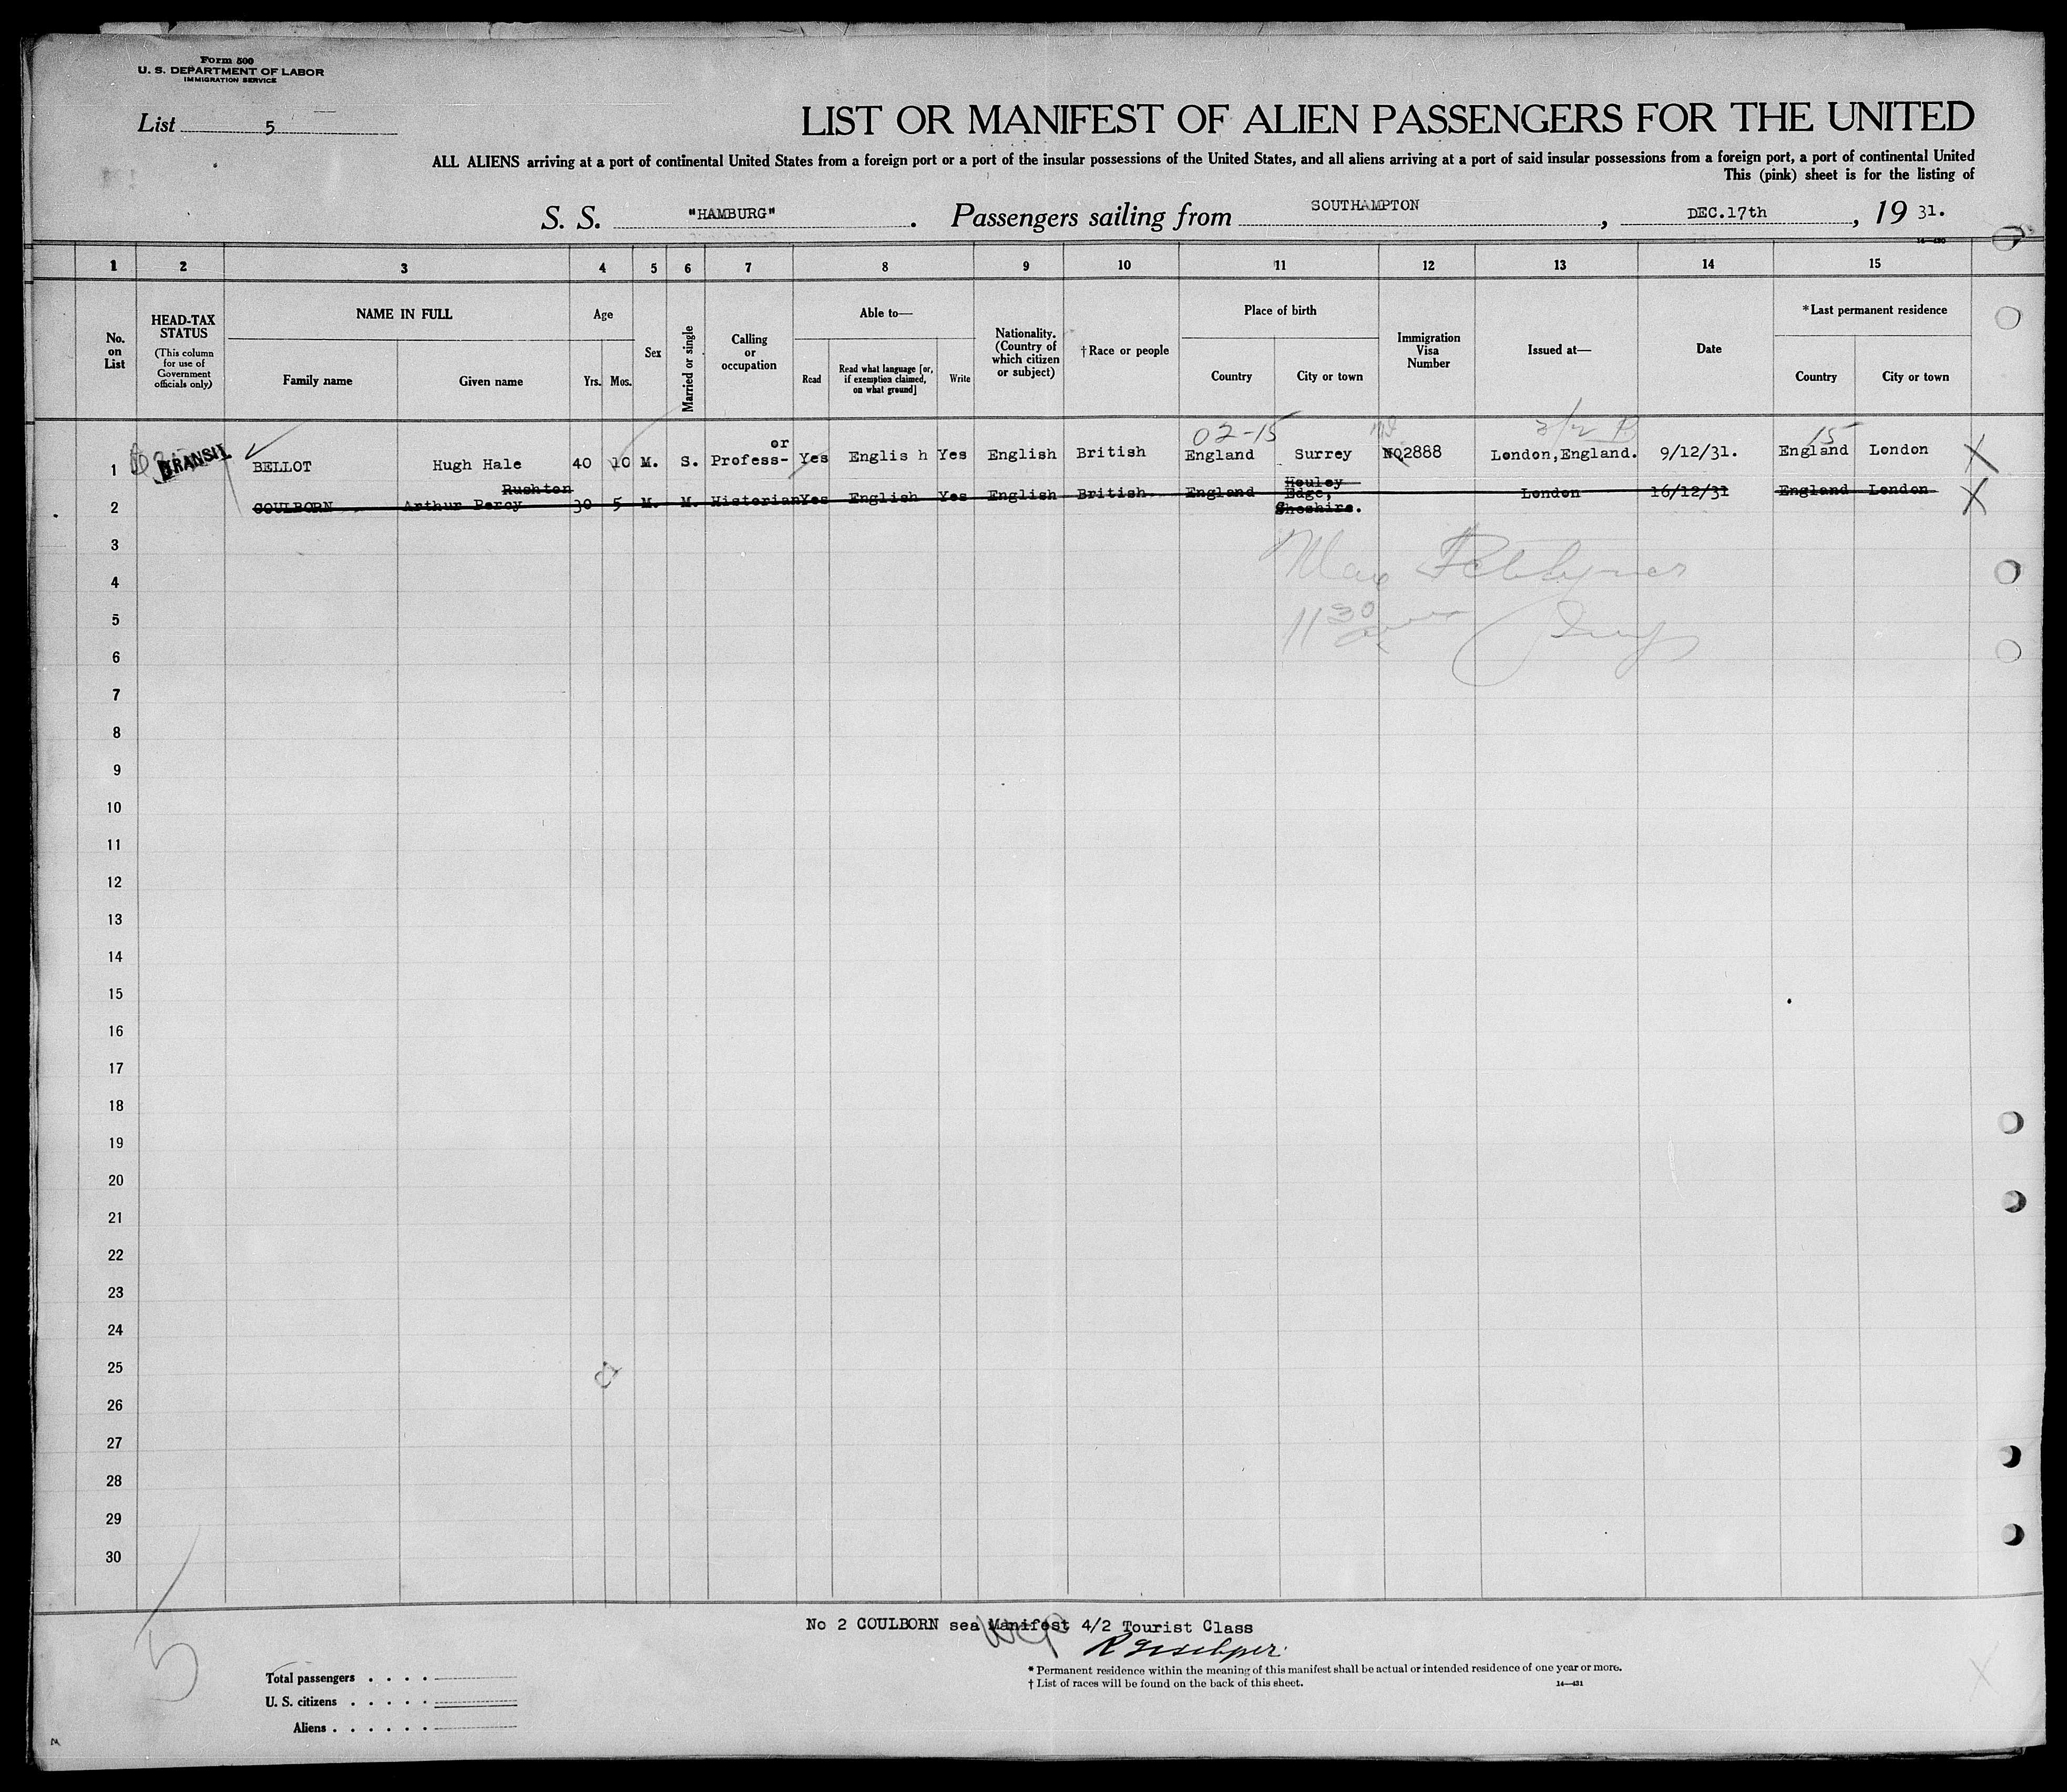 Form 500
U. S. DEPARTMENT OF LABOR
IMMIGRATION SERVICE
List 5
LIST OR MANIFEST OF ALIEN PASSENGERS FOR THE UNITED
ALL ALIENS arriving at a port of continental United States from a foreign port or a port of the insular possessions of the United States, and all aliens arriving at a port of said insular possessions from a foreign port, a port of continental United
This (pink) sheet is for the listing of
S. S. "HAMBURG". Passengers sailing from SOUTHAMPTON, DEC.17th, 19 31.
1 2 3 4 5 6 7 8 9 10 11 12 13 14 15
No. on List
HEAD-TAX STATUS
(This column for use of Government officials only)
NAME IN FULL
Family name
Given name
Age
Yrs. Mos.
Sex
Married or single
Calling or occupation
Able to—
Read
Read what language [or, if exemption claimed, on what ground]
Write
Nationality. (Country of which citizen or subject)
†Race or people
Place of birth
Country
City or town
Immigration Visa Number
Issued at—
Date
*Last permanent residence
Country
City or town
02-15
15
1 TRANSIT BELLOT Hugh Hale 40 10 M. S. Profess- or Yes Englis h Yes English British England Surrey NQ2888 London,England. 9/12/31. England London X
2 COULBORN Arthur Percy Rushton 30 5 M. M. Historian Yes English Yes English British England Edge, London 16/12/31 England London X
3
4
5
6
7
8
9
10
11
12
13
14
15
16
17
18
19
20
21
22
23
24
25
26
27
28
29
30
1130
5
No 2 COULBORN sea Manifest 4/2 Tourist Class
Total passengers . . . .
U. S. citizens . . . . .
Aliens . . . . . .
* Permanent residence within the meaning of this manifest shall be actual or intended residence of one year or more.
† List of races will be found on the back of this sheet.
14—431